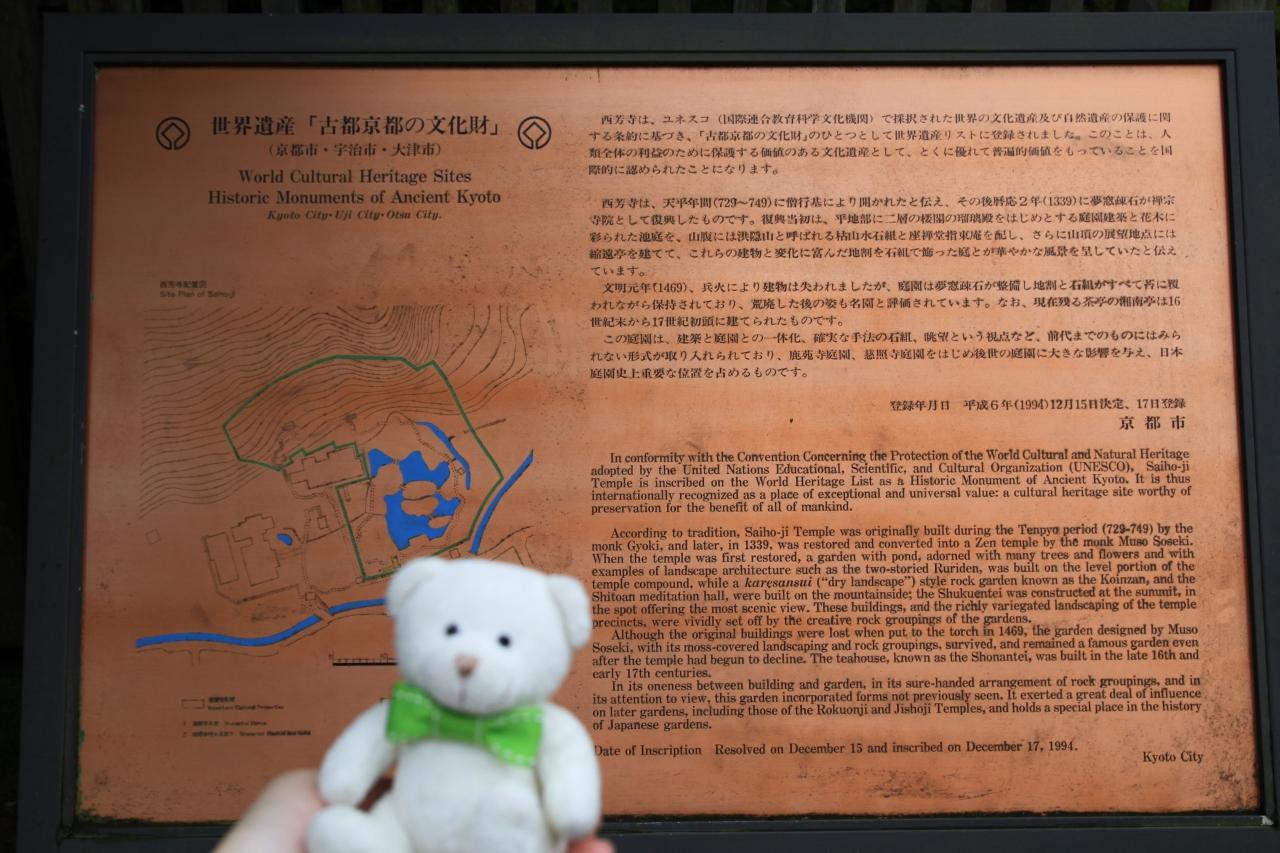 世界遺産「古都京都の文化財」
（京都市・宇治市・大津市）
World Cultural Heritage Sites
Historic Monuments of Ancient Kyoto
Kyoto City・Uji City・Otsu City.
西芳寺配置図
Site Plan of Saihoji
西芳寺は、ユネスコ（国際連合教育科学文化機関）で採択された世界の文化遺産及び自然遺産の保護に関
する条約に基づき、「古都京都の文化財」のひとつとして世界遺産リストに登録されました。このことは、人
類全体の利益のために保護する価値のある文化遺産として、とくに優れて普遍的価値をもっていることを国
際的に認められたことになります。
西芳寺は、天平年間(729〜749)に僧行基により開かれたと伝え、その後暦応２年(1339)に夢窓疎石が禅宗
寺院として復興したものです。復興当初は、平地部に二層の楼閣の瑠璃殿をはじめとする庭園建築と花木に
彩られた池庭を、山腹には洪隠山と呼ばれる枯山水石組と座禅堂指東庵を配し、さらに山頂の展望地点には
縮遠亭を建てて、これらの建物と変化に富んだ地割を石組で飾った庭とが華やかな風景を呈していたと伝え
ています。
文明元年(1469)、兵火により建物は失われましたが、庭園は夢窓疎石が整備し地割と石組がすべて苔に覆
われながら保持されており、荒廃した後の姿も名園と評価されています。なお、現在残る茶亭の湘南亭は16
世紀末から17世紀初頭に建てられたものです。
この庭園は、建築と庭園との一体化、確実な手法の石組、眺望という視点など、前代までのものにはみら
れない形式が取り入れられており、鹿苑寺庭園、慈照寺庭園をはじめ後世の庭園に大きな影響を与え、日本
庭園史上重要な位置を占めるものです。
登録年月日　平成６年(1994)12月15日決定、17日登録
京都市
In conformity with the Convention Concerning the Protection of the World Cultural and Natural Heritage
adopted by the United Nations Educational, Scientific, and Cultural Organization (UNESCO), Saiho-ji
Temple is inscribed on the World Heritage List as a Historic Monument of Ancient Kyoto. It is thus
internationally recognized as a place of exceptional and universal value: a cultural heritage site worthy of
preservation for the benefit of all of mankind.
According to tradition, Saiho-ji Temple was originally built during the Tenpyo period (729-749) by the
monk Gyoki, and later, in 1339, was restored and converted into a Zen temple by the monk Muso Soseki.
When the temple was first restored, a garden with pond, adorned with many trees and flowers and with
examples of landscape architecture such as the two-storied Ruriden, was built on the level portion of the
temple compound, while a karesansui (“dry landscape”) style rock garden known as the Koinzan, and the
Shitoan meditation hall, were built on the mountainside; the Shukuentei was constructed at the summit, in
the spot offering the most scenic view. These buildings, and the richly variegated landscaping of the temple
precincts, were vividly set off by the creative rock groupings of the gardens.
Although the original buildings were lost when put to the torch in 1469, the garden designed by Muso
Soseki, with its moss-covered landscaping and rock groupings, survived, and remained a famous garden even
after the temple had begun to decline. The teahouse, known as the Shonantei, was built in the late 16th and
early 17th centuries.
In its oneness between building and garden, in its sure-handed arrangement of rock groupings, and in
its attention to view, this garden incorporated forms not previously seen. It exerted a great deal of influence
on later gardens, including those of the Rokuonji and Jishoji Temples, and holds a special place in the history
of Japanese gardens.
Date of Inscription Resolved on December 15 and inscribed on December 17, 1994.
Kyoto City